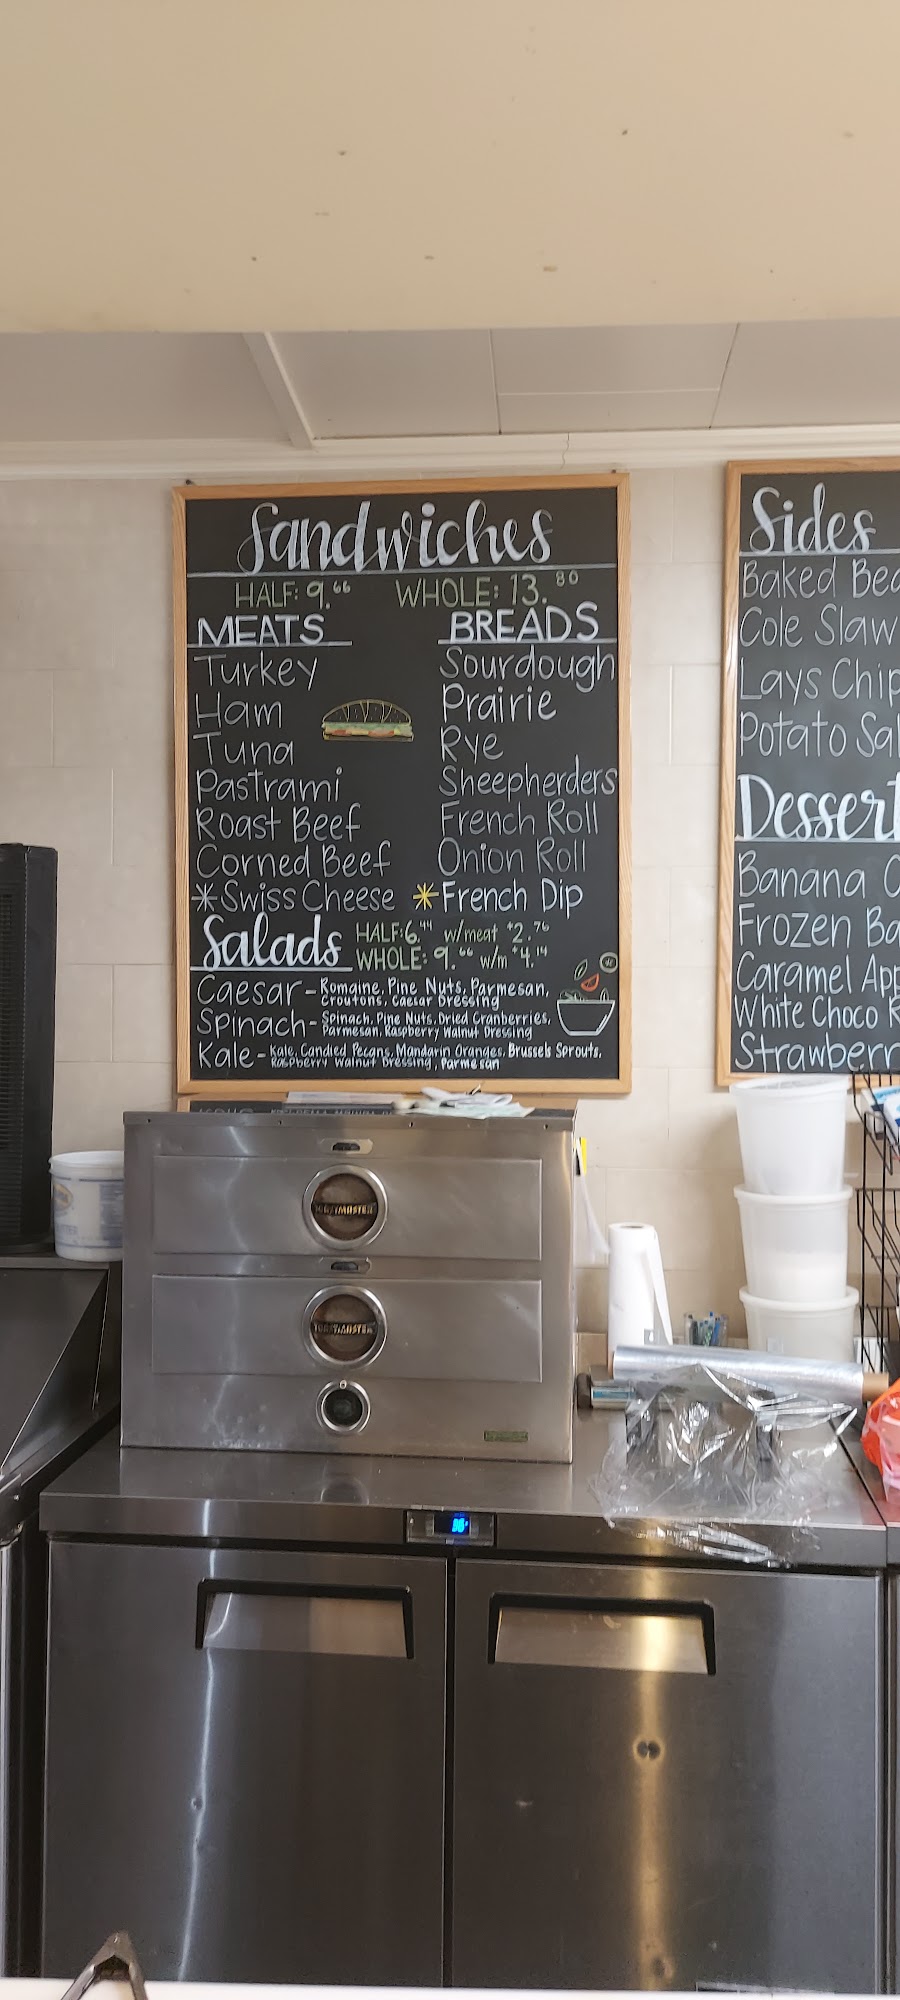 Sandwiches
HALF: 9.66 WHOLE: 13.80
MEATS
Turkey
Ham
Tuna
Pastrami
Roast Beef
Corned Beef
*Swiss Cheese
BREADS
Sourdough
Prairie
Rye
Sheepherders
French Roll
Onion Roll
*French Dip
Salads
HALF: 6.44 w/meat +2.76
WHOLE: 9.66 w/m +4.14
Caesar - Romaine, Pine Nuts, Parmesan,
Croutons, Caesar Dressing
Spinach - Spinach, Pine Nuts, Dried Cranberries,
Parmesan, Raspberry Walnut Dressing
Kale - Kale, Candied Pecans, Mandarin Oranges, Brussels Sprouts,
Raspberry Walnut Dressing, Parmesan
Sides
Baked Bea
Cole Slaw
Lays Chip
Potato Sal
Dessert
Banana
Frozen Ba
Caramel App
White Choco
Strawberr
TOASTMASTER
TOASTMASTER